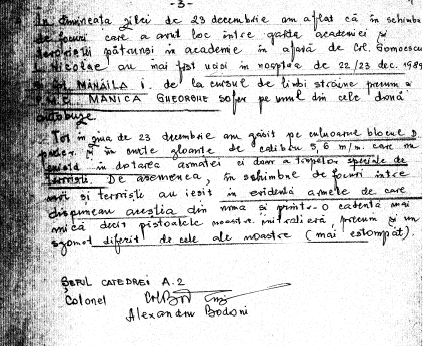 -3-
In dimineața zilei de 23 decembrie am aflat că în schimbul
de focuri care a avut loc între garda academiei și
teroriștii pătrunși în academie în afară de Col. Gomoescu
Nicolae au mai fost uciși în noaptea de 22/23 dec. 1989
MĂNĂILĂ I. de la cursul de limbi străine precum și
M.C. MANICA GHEORGHE șofer pe unul din cele două
autobuze.
Tot în ziua de 23 decembrie am găsit pe culuoarele blocul D
gloanțe de calibru 5,6 m/m. care nu
există în dotarea armatei ci doar a trupelor speciale de
teroriști. De asemenea, în schimburile de focuri între
noi și teroriști au ieșit în evidență armele de care
dispuneau aceștia din urmă și printr-o cadență mai
mică decît pistoalele noastre mitralieră, precum și un
zgomot diferit de cele ale noastre (mai estompat).
ȘEFUL CATEDREI A.2
Colonel
Alexandru Bodoni